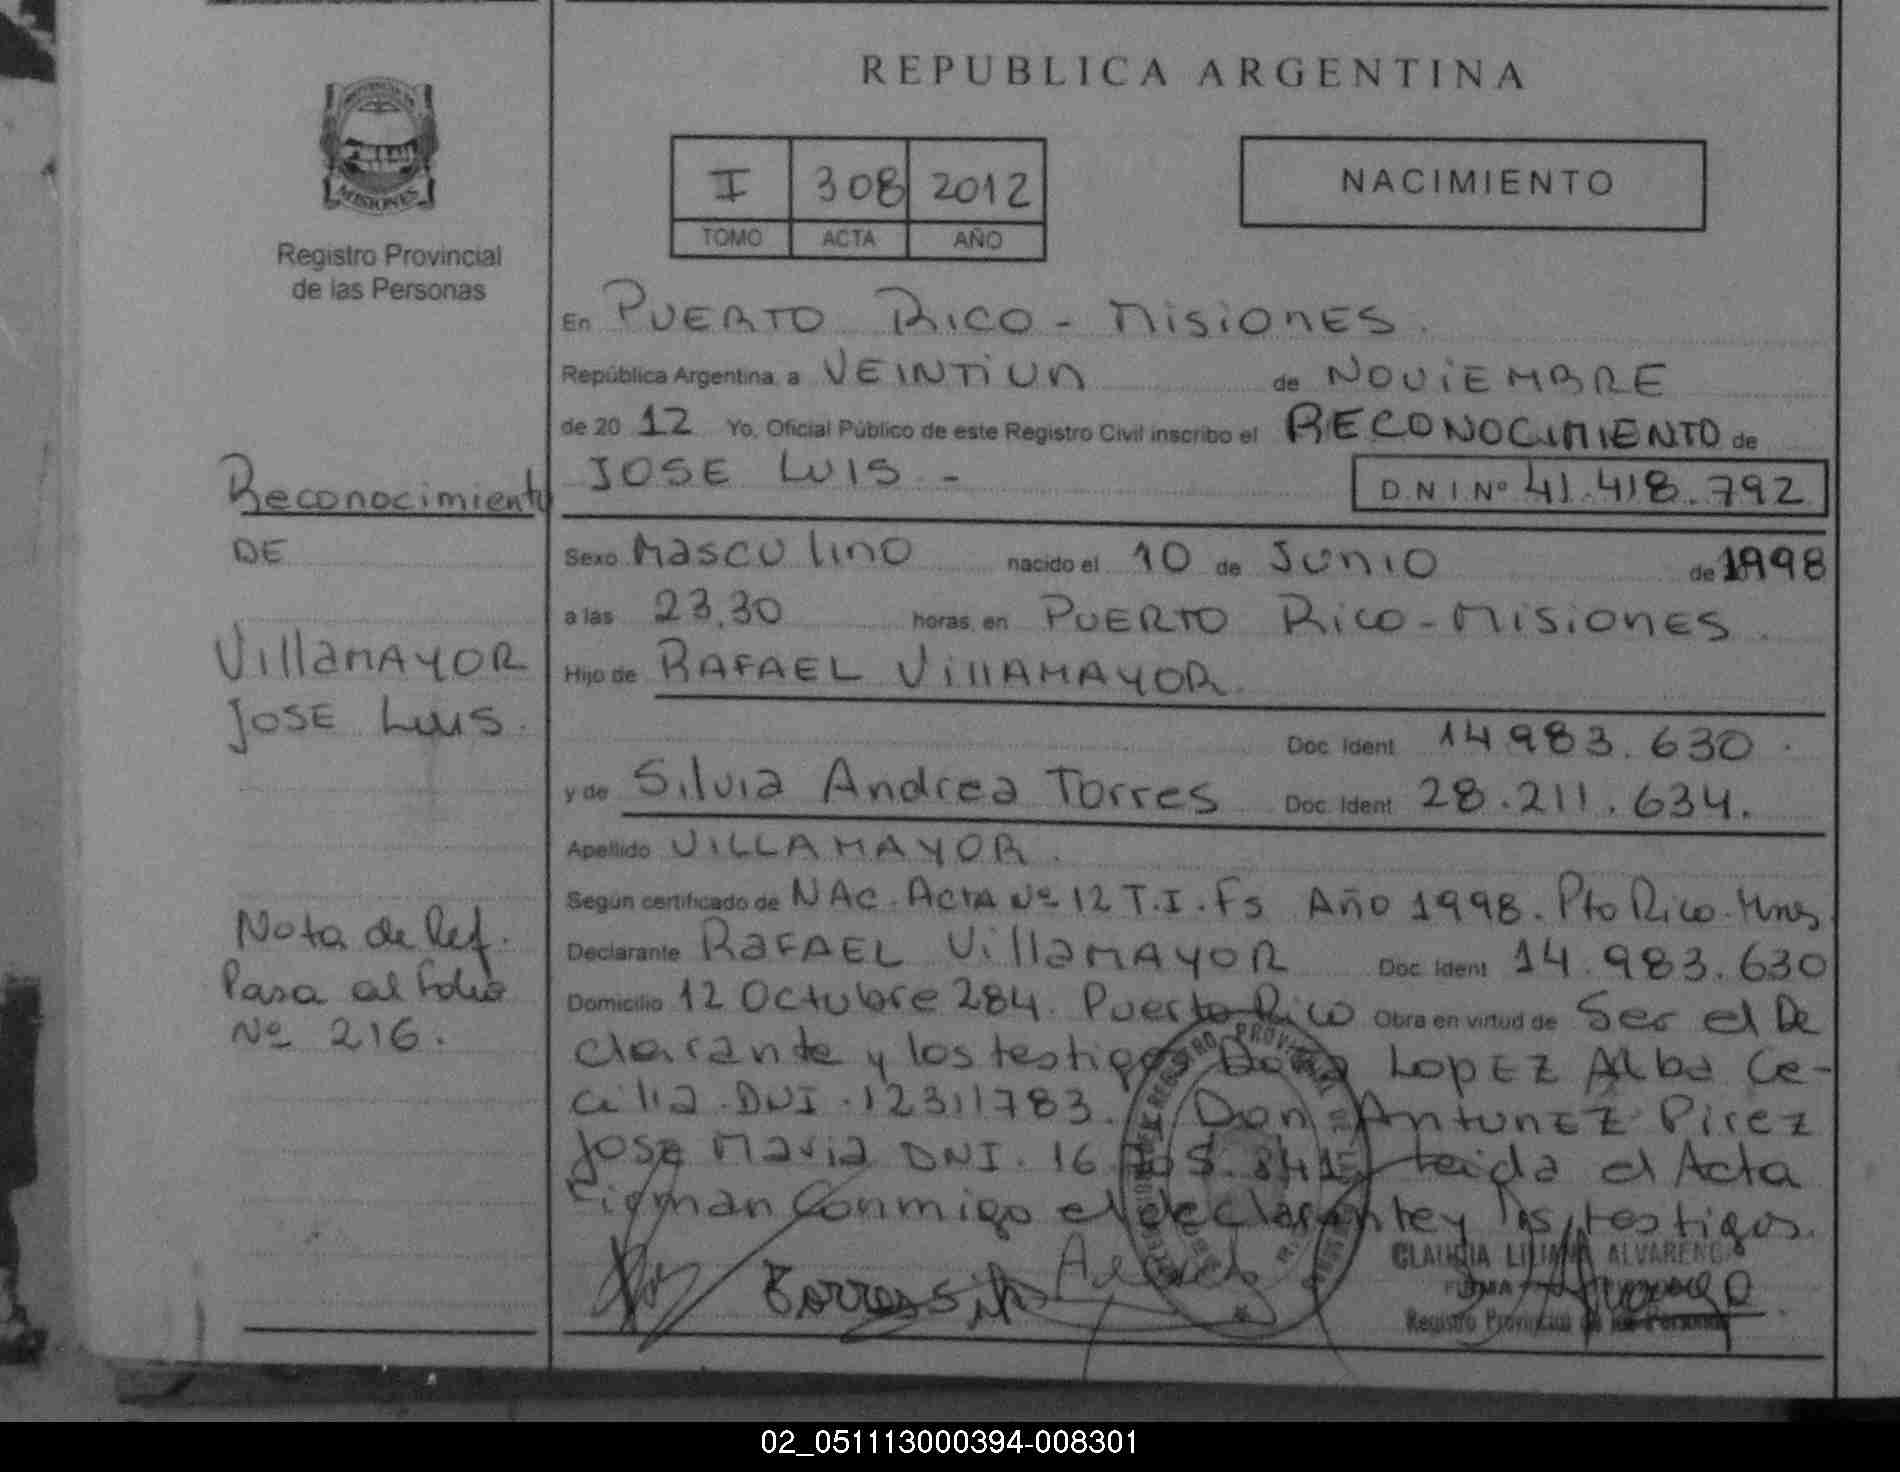 REPUBLICA ARGENTINA
PROVINCIA DE
MISIONES
Registro Provincial
de las Personas
I 308 2012
TOMO ACTA AÑO
NACIMIENTO
En PUERTO RICO - MISIONES.
República Argentina, a VEINTIUN de NOVIEMBRE
de 2012 Yo, Oficial Público de este Registro Civil inscribo el RECONOCIMIENTO de
JOSE LUIS -
D.N.I Nº 41.418.792
Sexo Masculino nacido el 10 de Junio de 1998
a las 23,30 horas, en PUERTO RICO - MISIONES.
Hijo de RAFAEL VILLAMAYOR.
Doc. Ident. 14983.630.
y de Silvia Andrea Torres Doc. Ident. 28.211.634.
Apellido VILLAMAYOR.
Según certificado de NAC. ACTA Nº 12 T.I. Fs Año 1998. Pto Rico. Mnes.
Declarante RAFAEL VILLAMAYOR Doc. Ident. 14.983.630
Domicilio 12 Octubre 284. Puerto Rico Obra en virtud de Ser el De
clarante y los testigos Doña LOPEZ Alba Ce-
cilia. DNI. 12311783. Don ANTUNEZ Pirez
Jose Maria DNI. 16. Leida el Acta
Firman Conmigo el declarante y los testigos.
Reconocimiento
DE
VILLAMAYOR
JOSE LUIS.
Nota de Ref.
Pasa al folio
Nº 216.
Torres Silv
CLAUDIA LILIANA ALVARENGA
FIRMA
Registro Provincial de las Personas
02_051113000394-008301